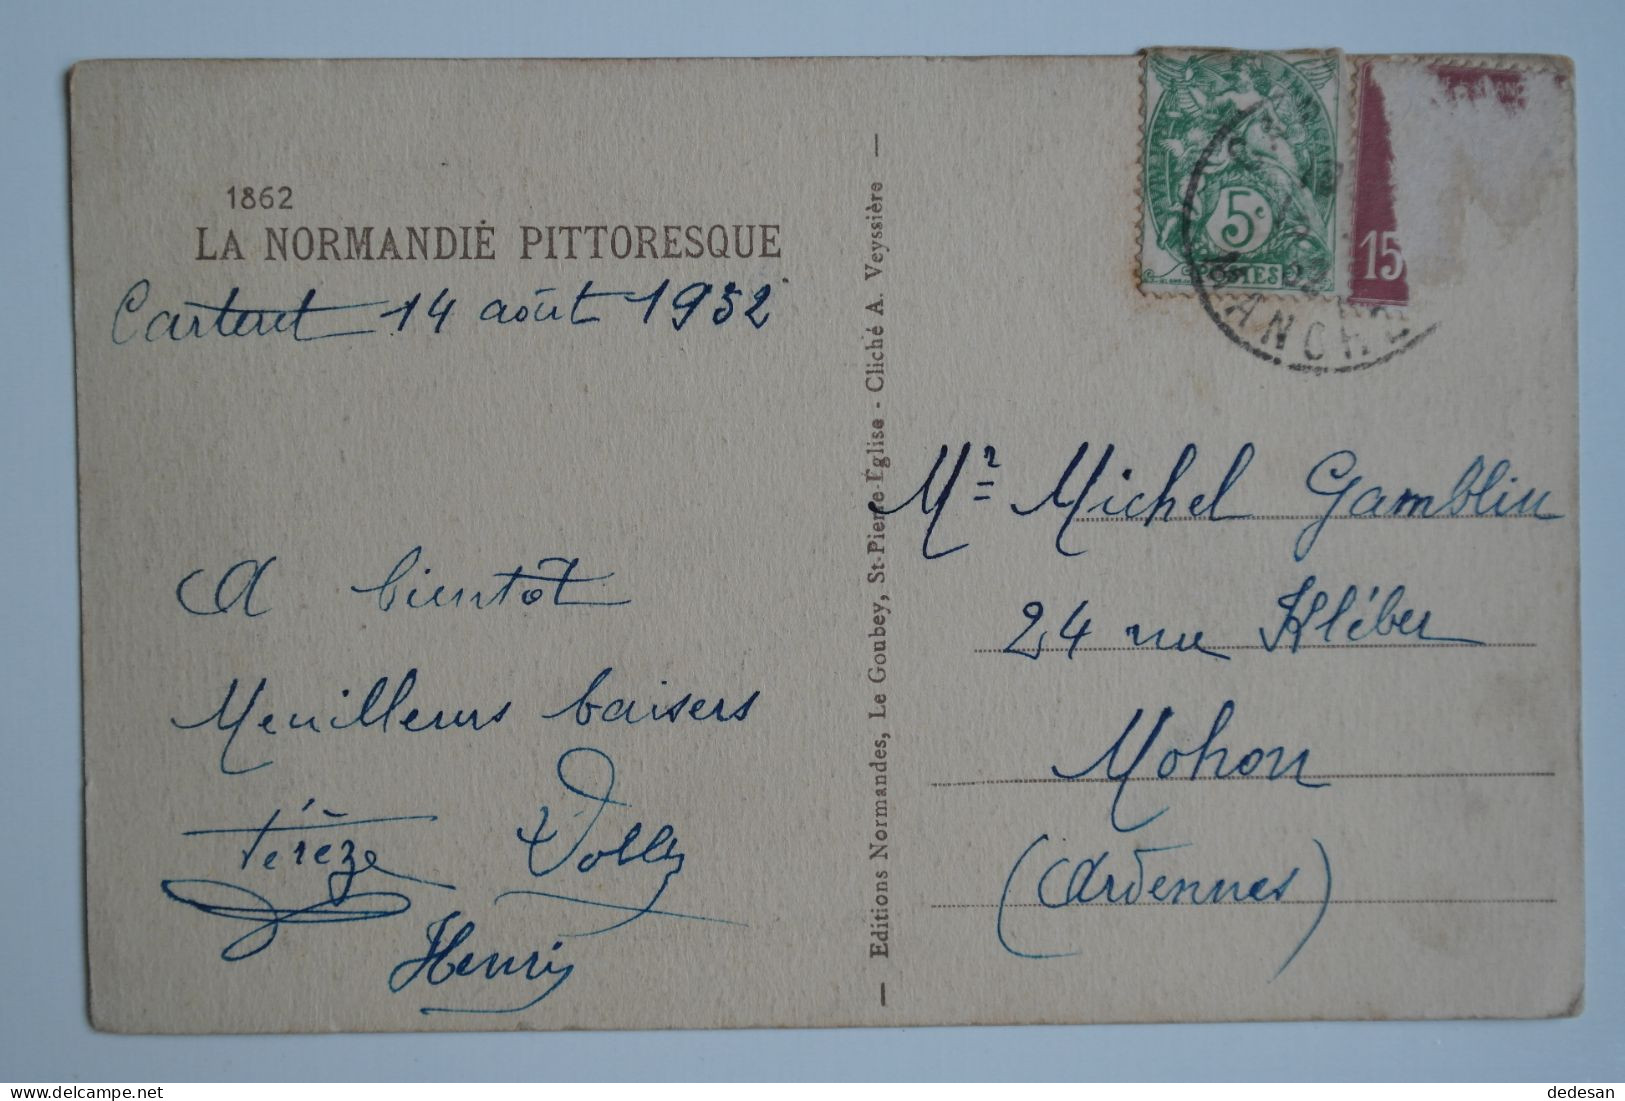 1862
LA NORMANDIE PITTORESQUE
Carteret 14 août 1932
A bientôt
Meuilleurs baisers
Térèze Dolly
Henri
— Editions Normandes, Le Goubey, St-Pierre-Église - Cliché A. Veyssière —
5c
POSTES
15
MANCHE
Mr Michel Gamblin
24 rue Kléber
Mohon
(Ardennes)
dedesan